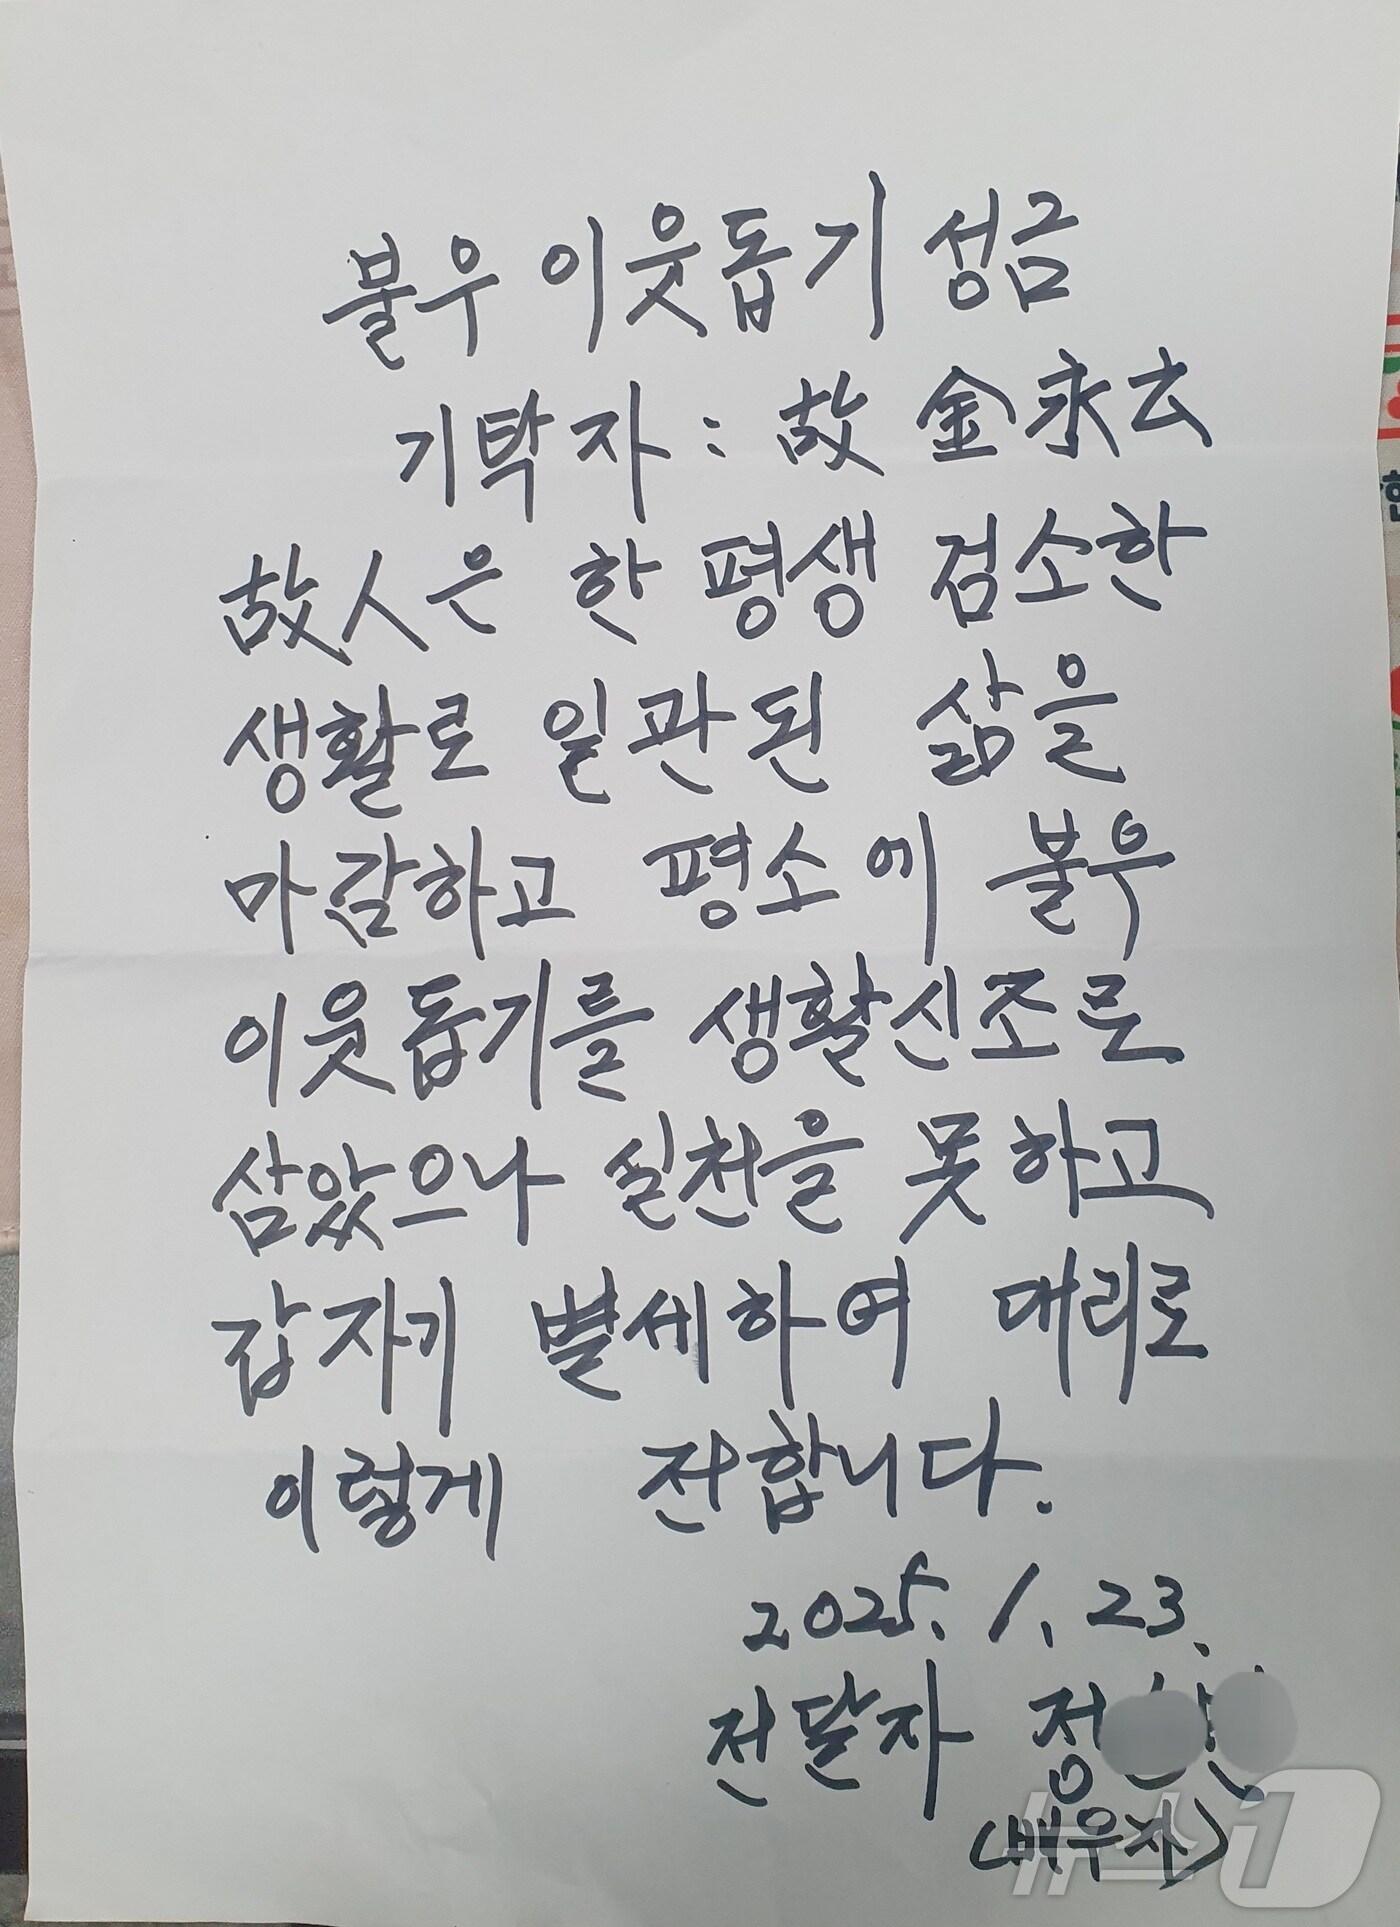 불우 이웃돕기 성금
기탁자 : 故 金永玄
故人은 한 평생 검소한
생활로 일관된 삶을
마감하고 평소에 불우
이웃돕기를 생활신조로
삼았으나 실천을 못하고
갑자기 별세하여 대리로
이렇게 전합니다.
2025. 1. 23.
전달자 정
(배우자)
뉴스1